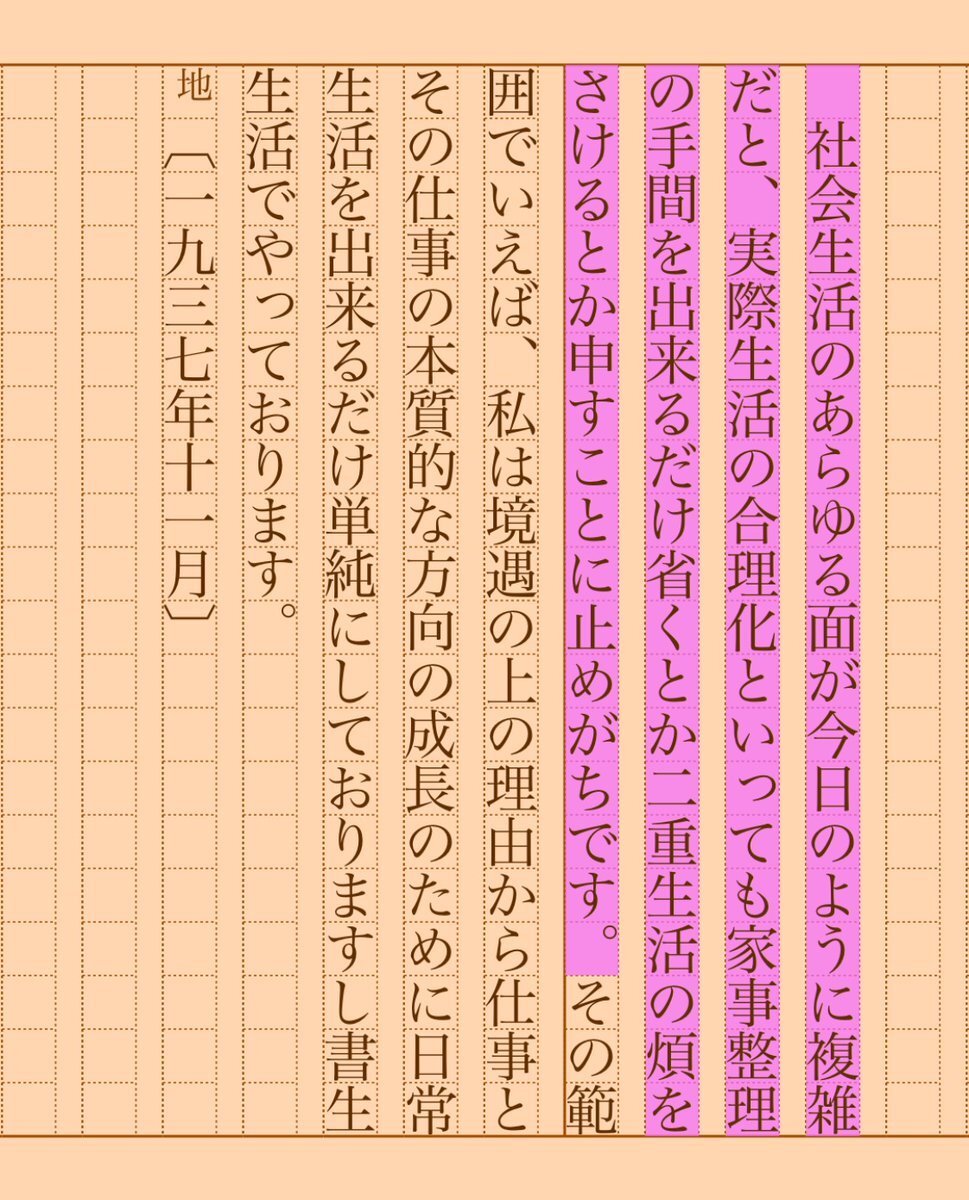 社会生活のあらゆる面が今日のように複雑
だと、実際生活の合理化といっても家事整理
の手間を出来るだけ省くとか二重生活の煩を
さけるとか申すことに止めがちです。その範
囲でいえば、私は境遇の上の理由から仕事と
その仕事の本質的な方向の成長のために日常
生活を出来るだけ単純にしておりますし書生
生活でやっております。
地〔一九三七年十一月〕